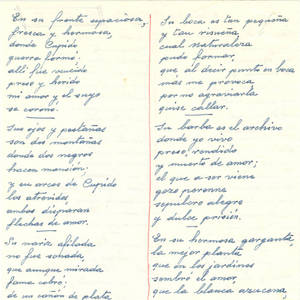 En su frente espaciosa,
fresca y hermosa,
donde Cupido
guerra formó:
allí fue vencido
preso y herido
mi amor y el suyo
se coronó.
Sus ojos y pestañas
son dos montañas
donde dos negros
hacen mansión;
y en arcos de Cupido
los atrevidos
ambos disparan
flechas de amor.
Su nariz afilada
no fue soñada
que aunque mirada
fama cobró;
de un cañón de plata
Su boca es tan pequeña
y tan risueña,
cual naturaleza
pudo formar,
que al decir punto en boca
más me provoca
por no agraviarla
quise callar.
Su barba es el archivo
donde yo vivo
preso, rendido
y muerto de amor;
el que a ser viene
gozo perenne
sepulcro alegre
y dulce prisión.
En su hermosa garganta,
la mejor planta
que en los jardines
sembró el amor,
que la blanca azucena,